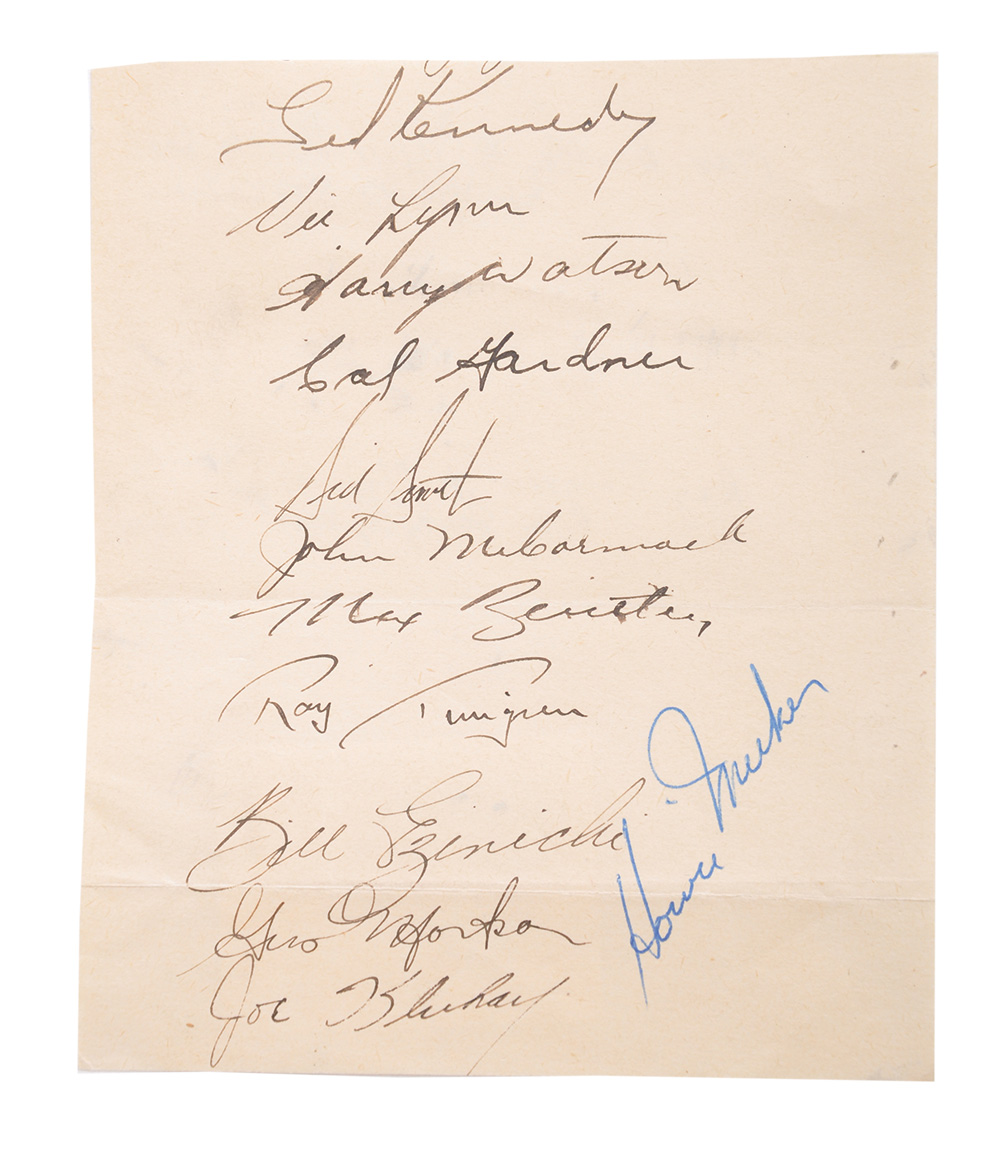 Ted Kennedy
Vic Lynn
Harry Watson
Cal Gardner
Sid Smith
John McCormack
Max Bentley
Ray Timgren
Bill Ezinicki
Gus Mortson
Joe Klukay
Howie Meeker